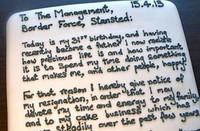 To The Management, 15.4.13
Border Force Stansted:
Today is my 31st birthday, and having
recently become a father I now realise
how precious life is and how important
it is to spend my time doing something
that makes me, and other people, happy!
For that reason I hereby give notice of
my resignation, in order that I may
devote my time and energy to my family
and to my cake business which has
steadily over the past few years